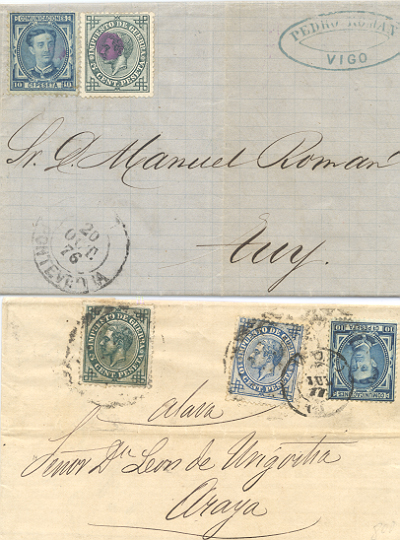 COMUNICACIONES
10 Cs DE PESETA 10
IMPUESTO DE GUERRA
5 CENT PESETA 5
PEDRO ROMAN
VIGO
Sr. D. Manuel Roman
Tuy.
20
OCT
76
PONTEVEDRA
IMPUESTO DE GUERRA
5 CENT PESETA
IMPUESTO DE GUERRA
CENT PESETA
10 Cs DE PESETA 10
COMUNICACIONES
77
Alava
Señor Dn Leon de Urigoitia
Araya